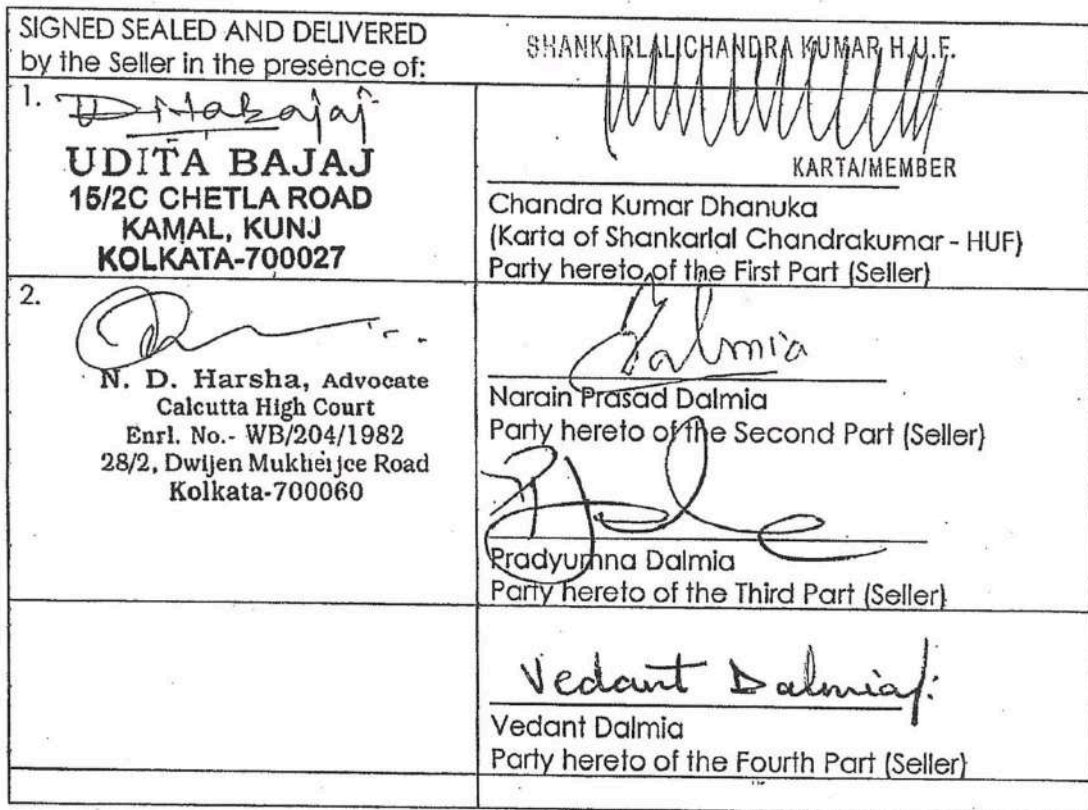 SIGNED SEALED AND DELIVERED
by the Seller in the presence of:
SHANKARLAL CHANDRA KUMAR H.U.F.
1.
UDITA BAJAJ
15/2C CHETLA ROAD
KAMAL, KUNJ
KOLKATA-700027
KARTA/MEMBER
Chandra Kumar Dhanuka
(Karta of Shankarlal Chandrakumar - HUF)
Party hereto of the First Part (Seller)
2.
N. D. Harsha, Advocate
Calcutta High Court
Enrl. No.- WB/204/1982
28/2, Dwijen Mukherjee Road
Kolkata-700060
Dalmia
Narain Prasad Dalmia
Party hereto of the Second Part (Seller)
Pradyumna Dalmia
Party hereto of the Third Part (Seller)
Vedant Dalmia
Vedant Dalmia
Party hereto of the Fourth Part (Seller)